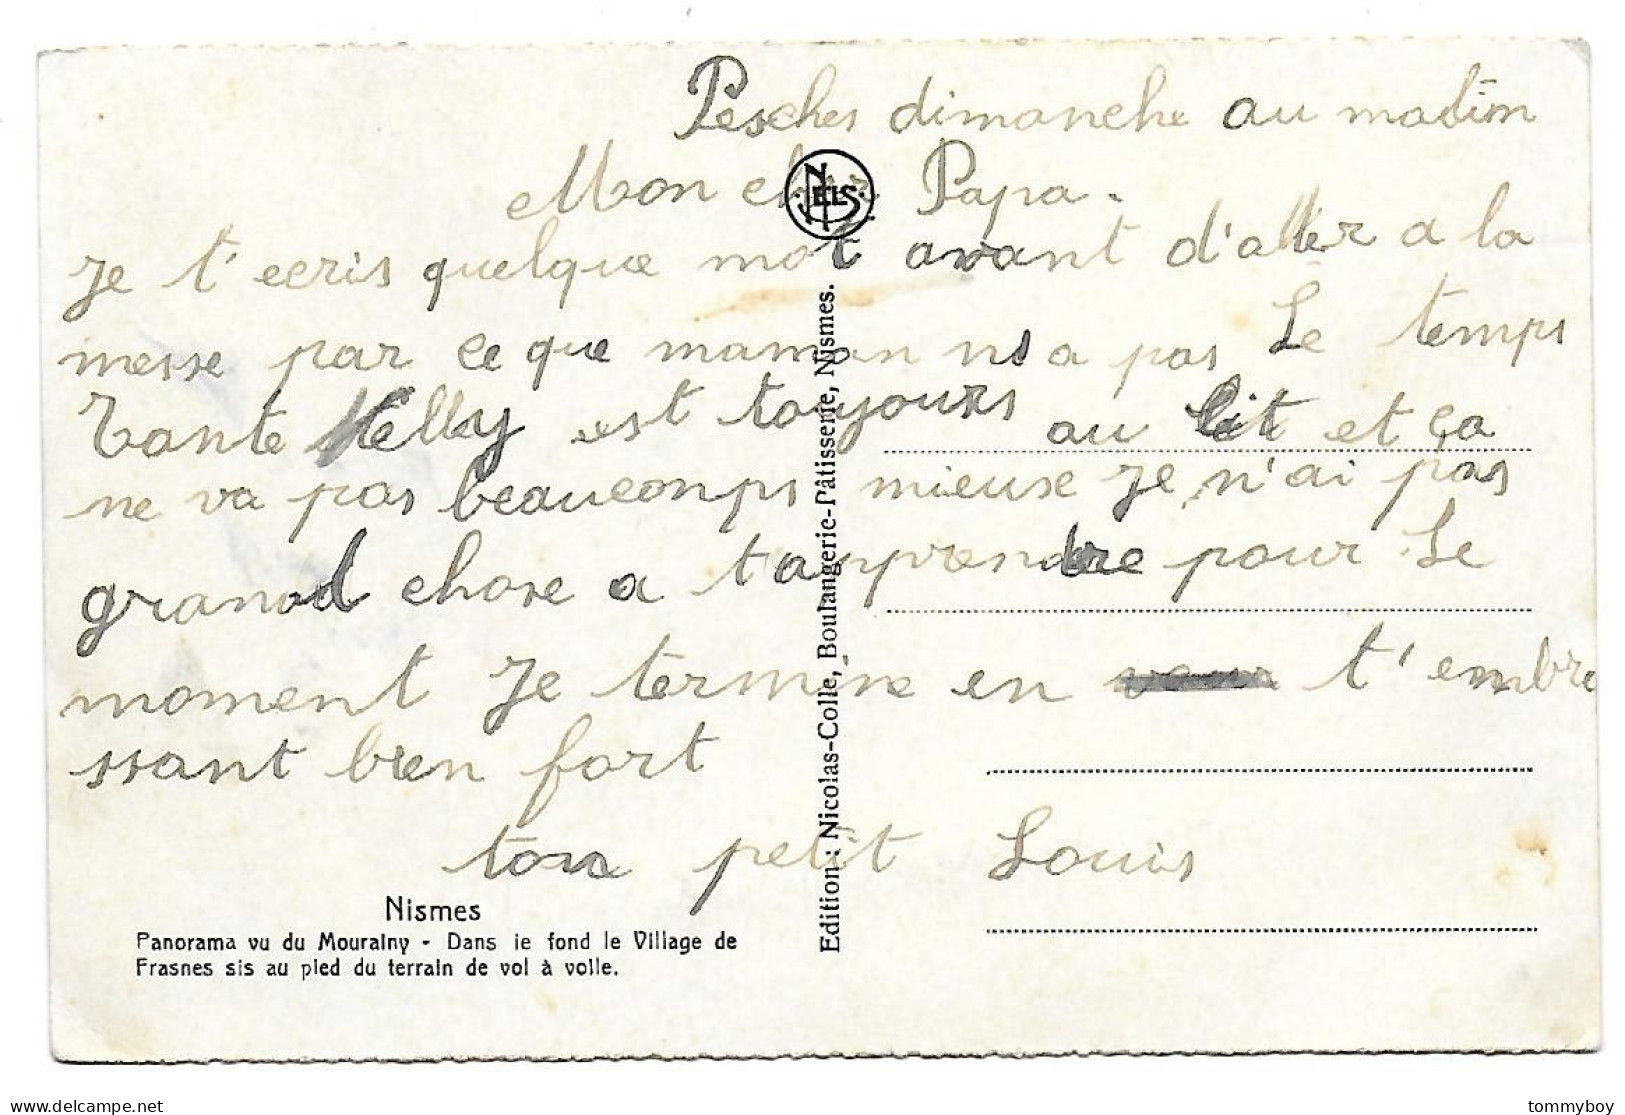 Pesches dimanche au matin
Mon cher Papa.
NELS
je t'ecris quelque mot avant d'aller a la
messe par ce que maman n'a pas Le temps
Tante Nelly est toujours au lit et ça
ne va pas beaucomps mieuse je n'ai pas
grand chose a t'apprendre pour Le
moment je termine en t'embra
ssant bien fort
ton petit Louis
Nismes
Panorama vu du Mouralny - Dans le fond le Village de
Frasnes sis au pied du terrain de vol à voile.
Edition : Nicolas-Colle, Boulangerie-Pâtisserie, Nismes.
delcampe.net
tommyboy